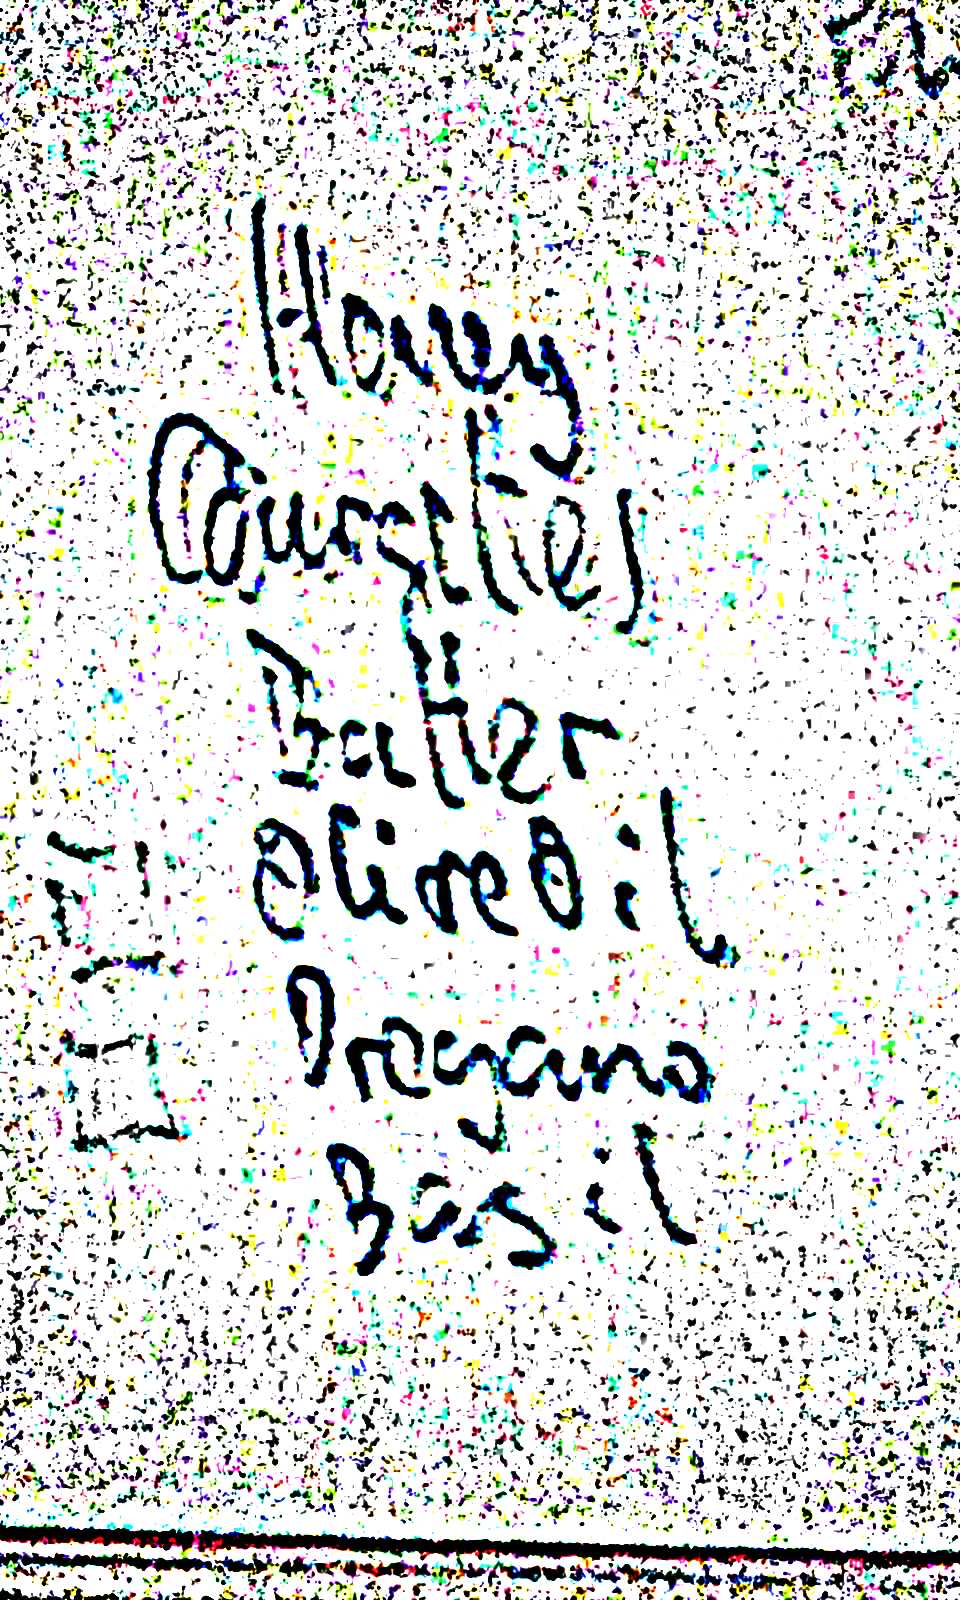 Honey
Courgettes
Butter
Olive Oil
Oregano
Basil